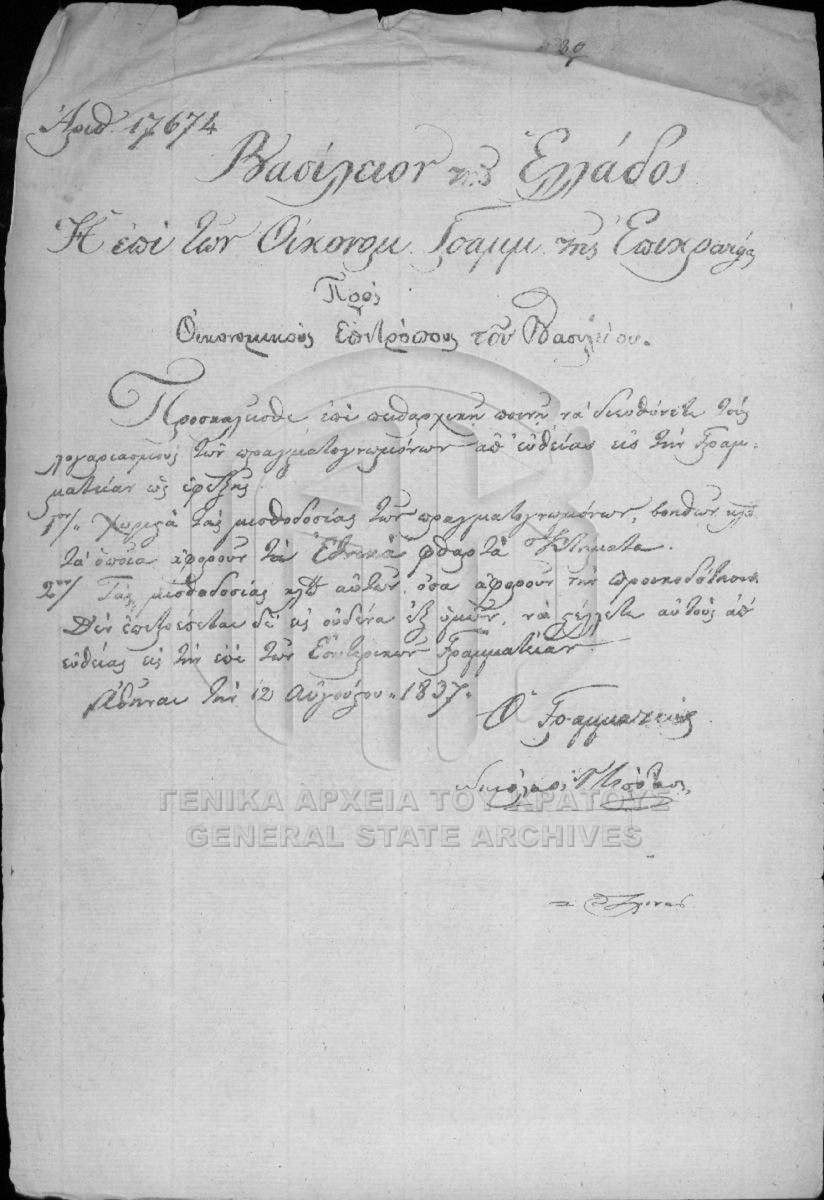 39
Ἀριθ. 17674
Βασίλειον τῆς Ἑλλάδος
Ἡ ἐπὶ τῶν Οἰκονομ. Γραμμ. τῆς Ἐπικρατείας
Πρὸς
Οἰκονομικοὺς Ἐπιτρόπους τοῦ Βασιλείου.
Προσκαλεῖσθε ἐπὶ πειθαρχικῇ ποινῇ νὰ διευθύνετε τοὺς
λογαριασμοὺς τῶν πραγματογνωμόνων ἀπ' εὐθείας εἰς τὴν Γραμ-
ματείαν ὡς ἐφεξῆς.
1ον/ Χωριστὰ τὰς μισθοδοσίας τῶν πραγματογνωμόνων, βοηθῶν κλπ
τὰ ὁποῖα ἀφοροῦν τὰ Ἐθνικὰ φθαρτὰ Κτήματα.
2ον/ Τὰς μισθοδοσίας κλπ αὐτῶν ὅσα ἀφοροῦν τὴν προικοδότησιν.
Δὲν ἐπιτρέπεται δὲ εἰς οὐδένα ἐξ ὑμῶν, νὰ στέλλετε αὐτοὺς ἀπ'
εὐθείας εἰς τὴν ἐπὶ τῶν Ἐσωτερικῶν Γραμματείαν.
Ἀθῆναι τὴν 12 Αὐγούστου 1837.
Ὁ Γραμματεὺς
Νικόλαος
ΓΕΝΙΚΑ ΑΡΧΕΙΑ ΤΟΥ ΚΡΑΤΟΥΣ
GENERAL STATE ARCHIVES